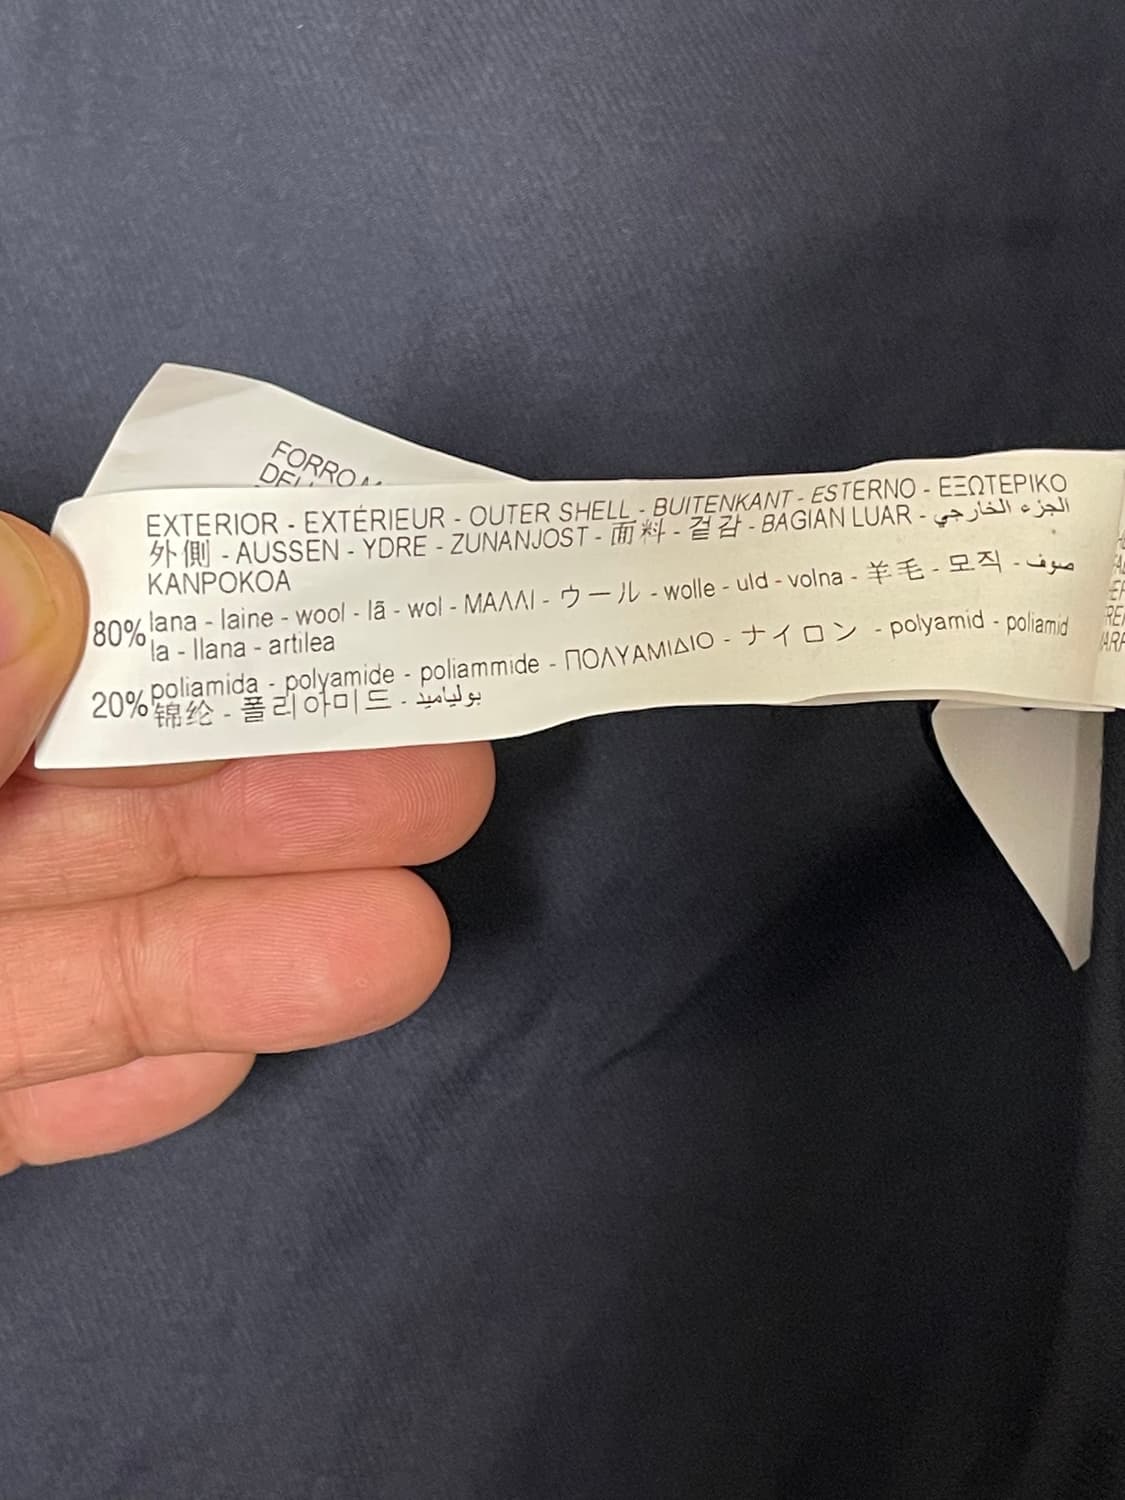 FORRO
EXTERIOR - EXTÉRIEUR - OUTER SHELL - BUITENKANT - ESTERNO - ΕΞΩΤΕΡΙΚΟ
外側 - AUSSEN - YDRE - ZUNANJOST - 面料 - 겉감 - BAGIAN LUAR - الجزء الخارجي
KANPOKOA
80% lana - laine - wool - lã - wol - ΜΑΛΛΙ - ウール - wolle - uld - volna - 羊毛 - 모직 - صوف
la - llana - artilea
20% poliamida - polyamide - poliammide - ΠΟΛΥΑΜΙΔΙΟ - ナイロン - polyamid - poliamid
锦纶 - 폴리아미드 - بولياميد